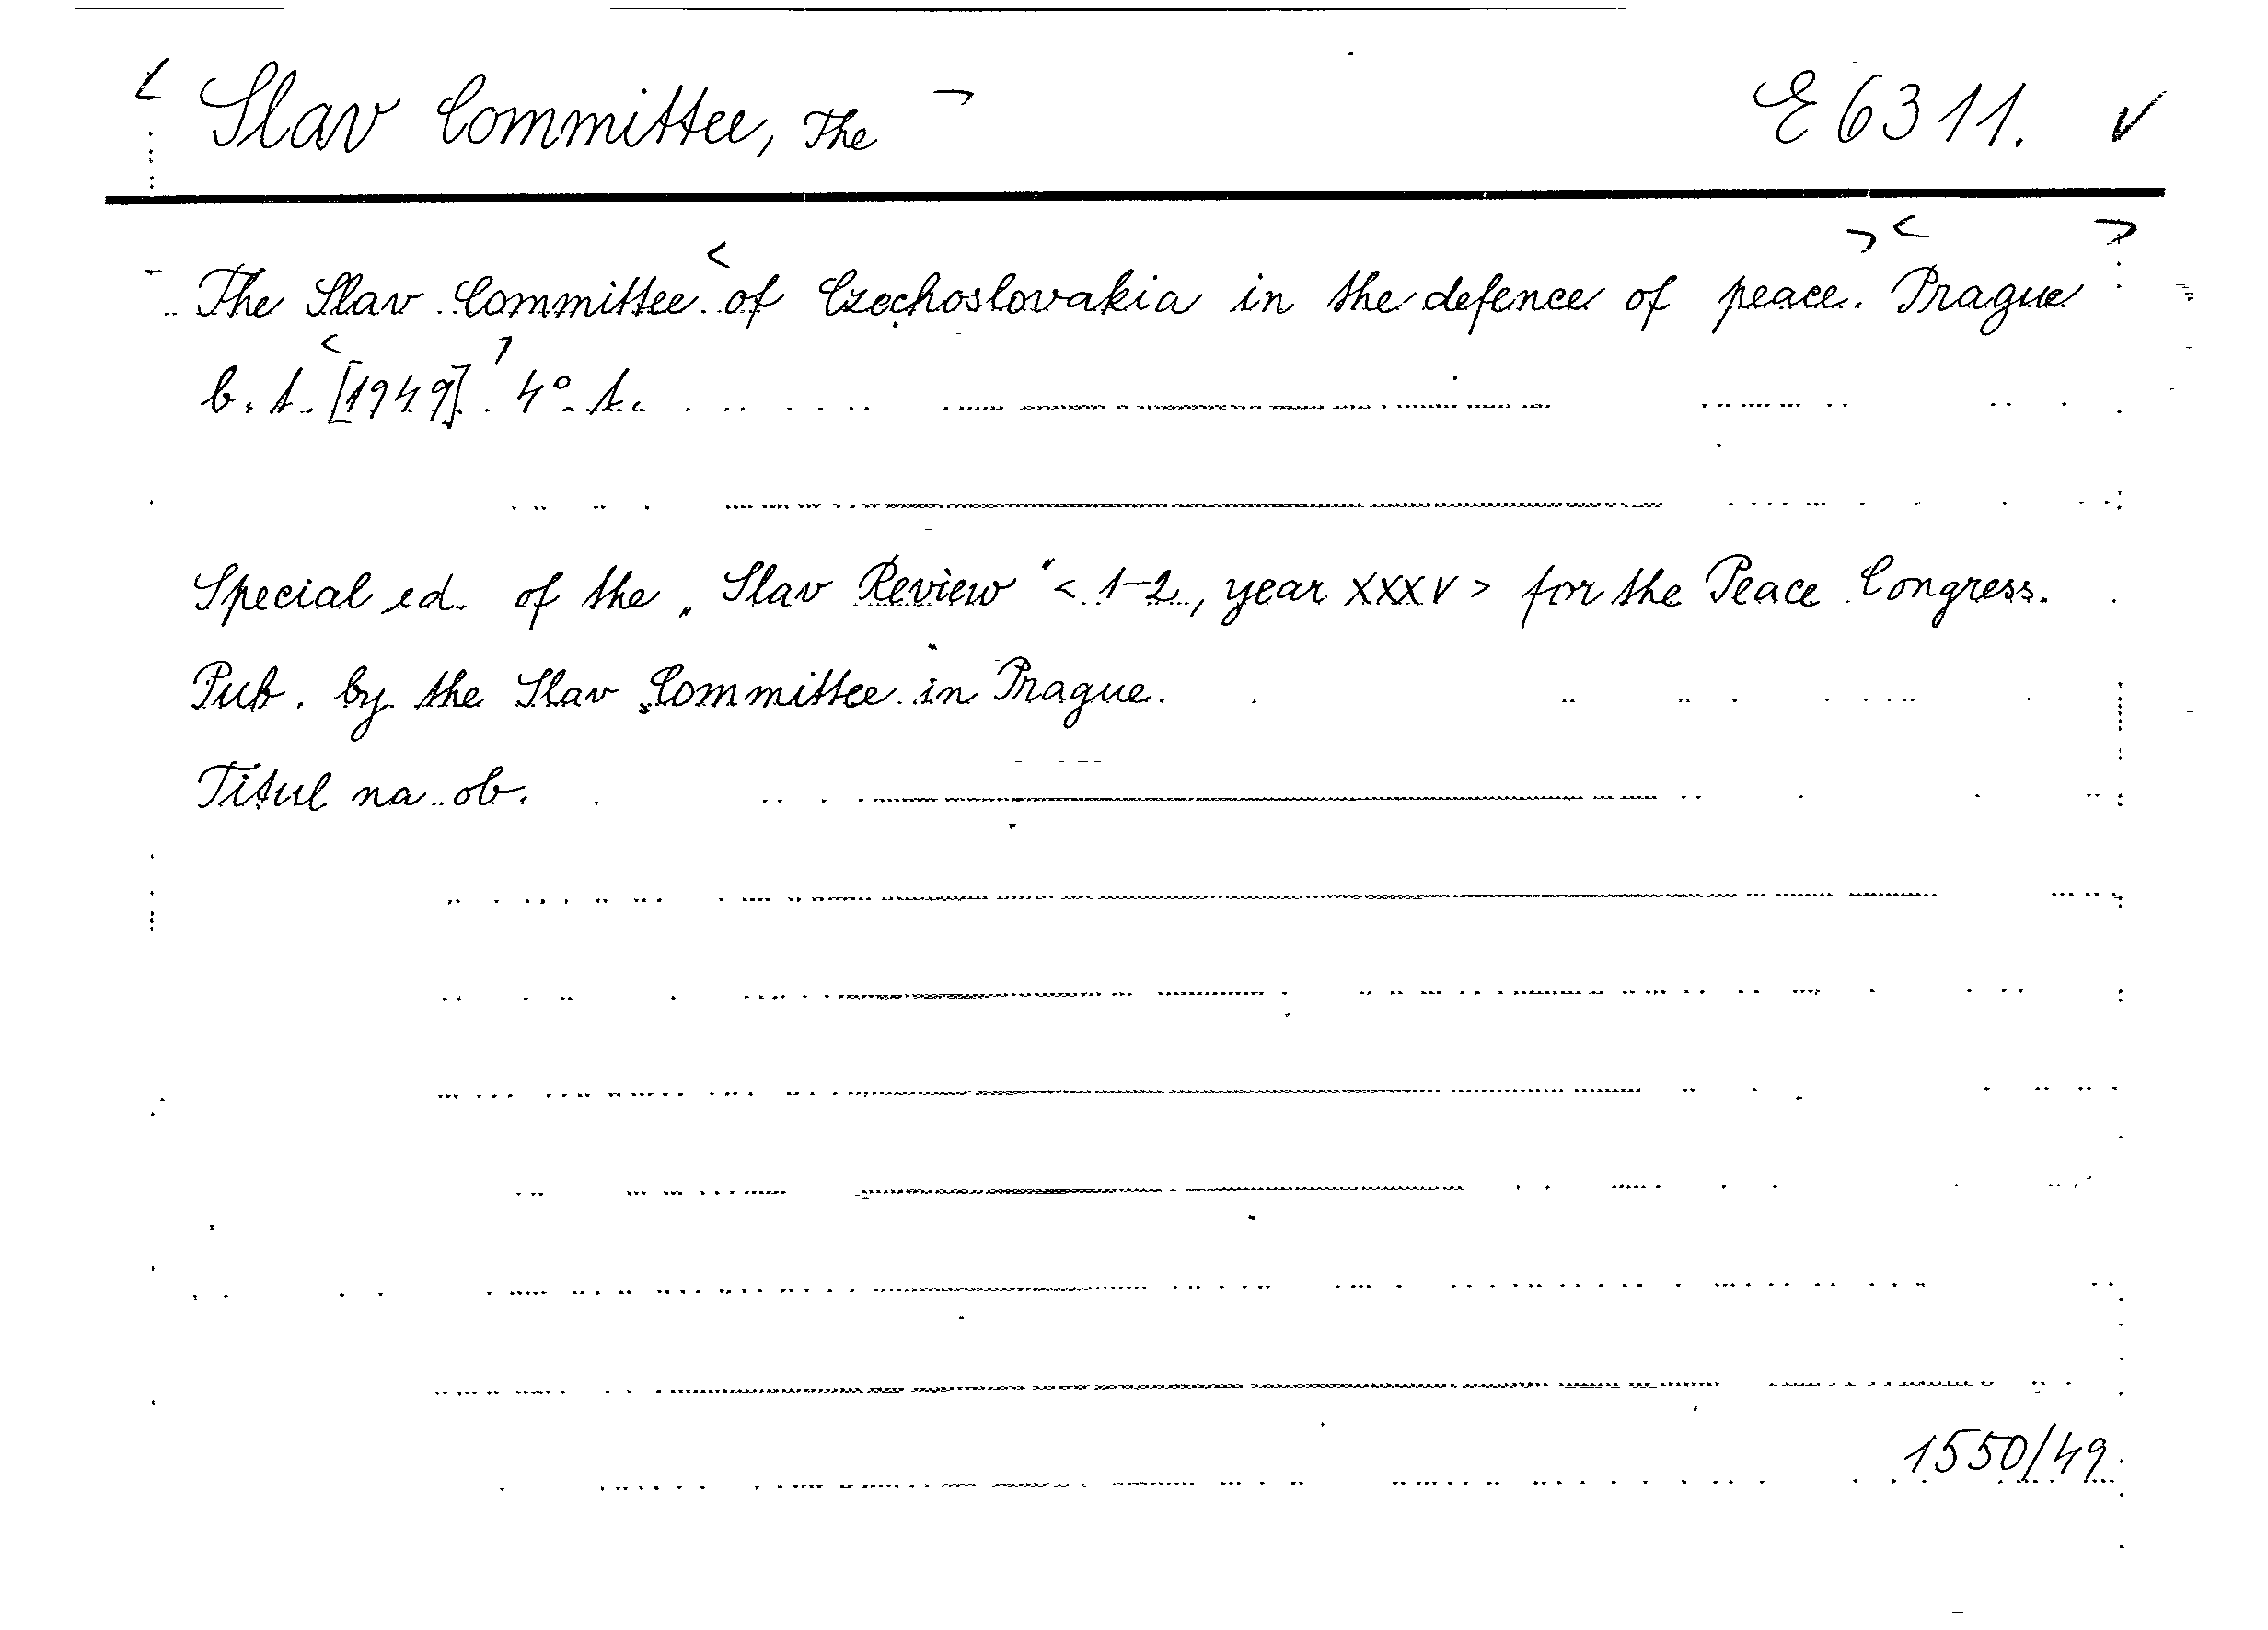 Slav Committee, The E 6311. ✓
The Slav Committee of Czechoslovakia in the defence of peace. Prague
b. t. [1949]. 4° t.
Special ed. of the „Slav Review" <1-2, year XXXV> for the Peace Congress.
Pub. by the Slav Committee in Prague.
Titul na ob.
1550/49.